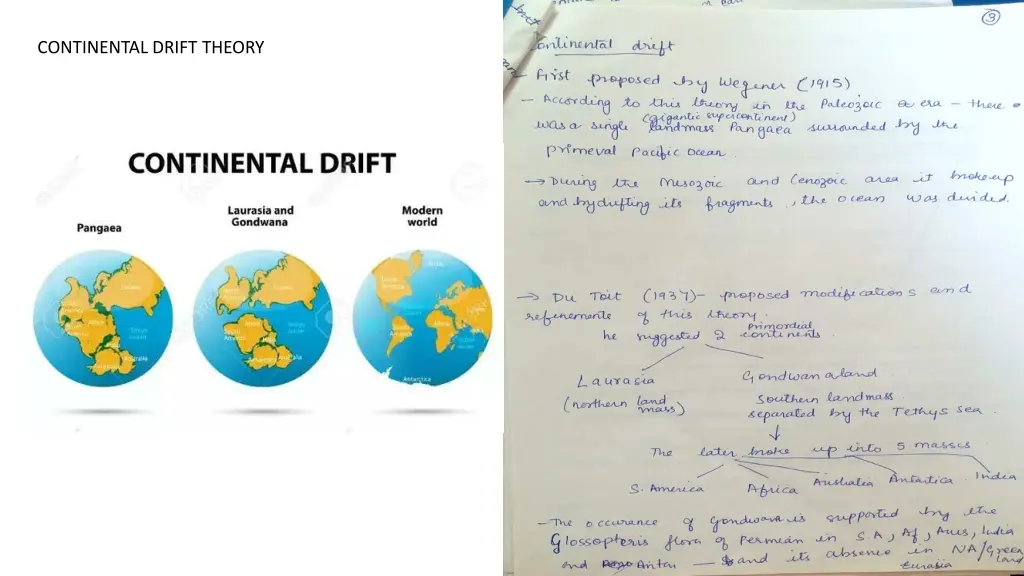 CONTINENTAL DRIFT THEORY
CONTINENTAL DRIFT
Pangaea
Laurasia and
Gondwana
Modern
world
Africa
Tethys
ocean
Australia
Africa
Tethys
ocean
Australia
Africa
Antarctica
9
ontinental drift
First proposed by Wegener (1915)
- According to this theory in the Paleozoic era - there
(gigantic supercontinent)
was a single landmass Pangaea surrounded by the
primeval Pacific Ocean
→ During the Mesozoic and Cenozoic area it broke up
and by drifting its fragments, the ocean was divided.
→ Du Toit (1937)- proposed modifications and
refinements of this theory.
he suggested 2 primordial continents.
Laurasia
(northern land mass)
Gondwanaland
Southern landmass
separated by the Tethys sea.
The later broke up into 5 masses
S. America Africa Australia Antartica India
- The occurance of Gondwana is supported by the
Glossopteris flora of Permian in S.A, Af, Aus, India
and Antan - and its absence in NA/Green
land
Eurasia